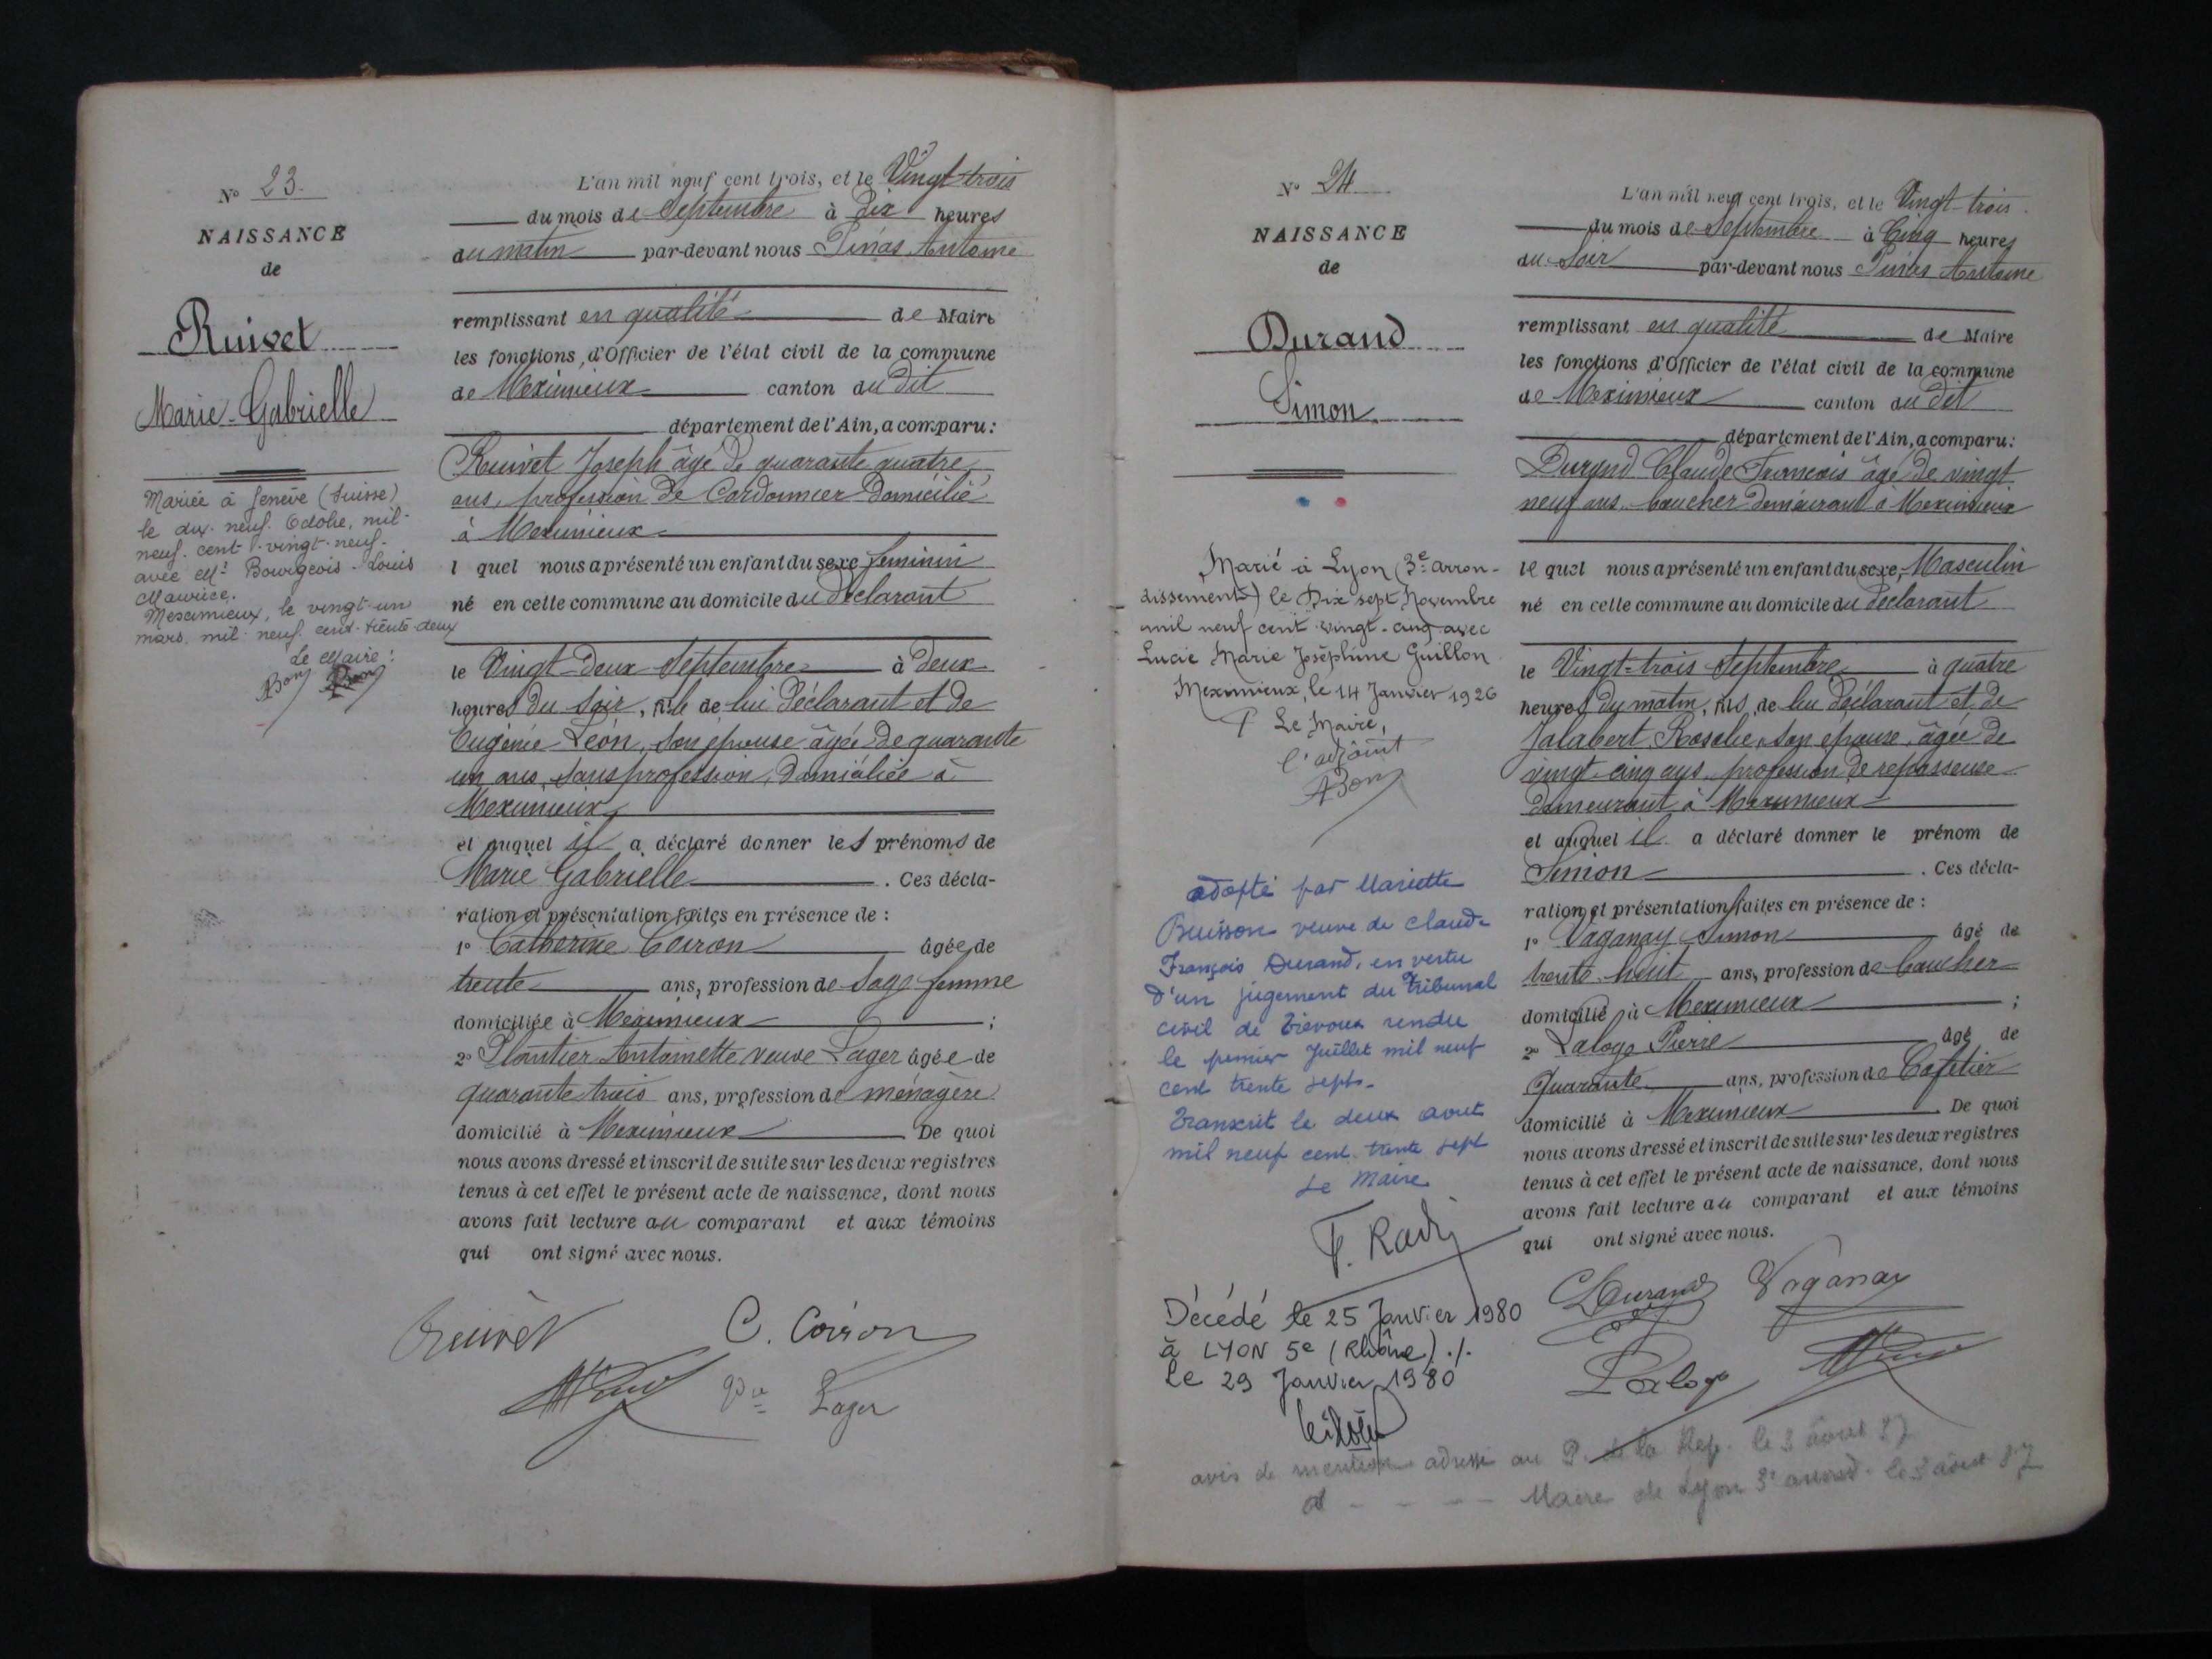 N° 23.
NAISSANCE
de
Ruivet
Marie-Gabrielle
Mariée à Genève (Suisse)
le dix-neuf Octobre, mil-
neuf-cent-vingt-neuf-
avec Mr Bourgeois-Louis
Maurice.
Meximieux, le vingt-un
mars, mil-neuf-cent-trente-deux
Le Maire:
L'an mil neuf cent trois, et le Vingt-trois
du mois de Septembre à dix heures
du matin par-devant nous Pinas Antoine
remplissant en qualité de Maire
les fonctions d'Officier de l'état civil de la commune
de Meximieux canton du dit
département de l'Ain, a comparu:
Ruivet Joseph âgé de quarante quatre
ans, profession de Cordonnier domicilié
à Meximieux
l quel nous a présenté un enfant du sexe féminin
né en cette commune au domicile du déclarant
le Vingt-deux Septembre à deux
heures du soir, fille de lui déclarant et de
Eugénie Léon, son épouse âgée de quarante
un ans, sans profession, domiciliée à
Meximieux
et auquel il a déclaré donner les prénoms de
Marie Gabrielle . Ces décla-
ration et présentation faites en présence de :
1° Catherine Coiron âgée de
trente ans, profession de Sage femme
domiciliée à Meximieux ;
2° Plantier Antoinette veuve Lager âgée de
quarante trois ans, profession de ménagère
domicilié à Meximieux De quoi
nous avons dressé et inscrit de suite sur les deux registres
tenus à cet effet le présent acte de naissance, dont nous
avons fait lecture au comparant et aux témoins
qui ont signé avec nous.
Ruivet C. Coiron
Lager
N° 24
NAISSANCE
de
Durand
Simon
Marié à Lyon (3e arron-
dissement) le Dix sept Novembre
mil neuf cent vingt-cinq avec
Lucie Marie Joséphine Guillon
Meximieux, le 14 Janvier 1926
P Le Maire,
l'adjoint
adopté par Mariette
Buisson veuve de Claude
François Durand, en vertu
d'un jugement du Tribunal
civil de Trévoux rendu
le premier Juillet mil neuf
cent trente sept.
Transcrit le deux aout
mil neuf cent trente sept
Le Maire
Décédé le 25 Janvier 1980
à LYON 5e (Rhône)./.
Le 29 Janvier 1980
L'an mil neuf cent trois, et le Vingt-trois
du mois de Septembre à Cinq heures
du Soir par-devant nous Pinas Antoine
remplissant en qualité de Maire
les fonctions d'Officier de l'état civil de la commune
de Meximieux canton du dit
département de l'Ain, a comparu:
Durand Claude François âgé de vingt
neuf ans, boucher demeurant à Meximieux
le quel nous a présenté un enfant du sexe Masculin
né en cette commune au domicile du déclarant
le Vingt-trois Septembre à quatre
heures du matin, fils de lui déclarant et de
Jalabert Rosalie, son épouse, âgée de
vingt-cinq ans, profession de repasseuse
demeurant à Meximieux
et auquel il a déclaré donner le prénom de
Simon . Ces décla-
ration et présentation faites en présence de :
1° Vaganay Simon âgé de
trente-huit ans, profession de boucher
domicilié à Meximieux ;
2° Laloge Pierre âgé de
Quarante ans, profession de Cafetier
domicilié à Meximieux De quoi
nous avons dressé et inscrit de suite sur les deux registres
tenus à cet effet le présent acte de naissance, dont nous
avons fait lecture au comparant et aux témoins
qui ont signé avec nous.
Durand Vaganay
Laloge
avis de mention adressé au P. de la Rep. le 3 aout 37
Maire de Lyon 3e arrond. le 3 aout 37